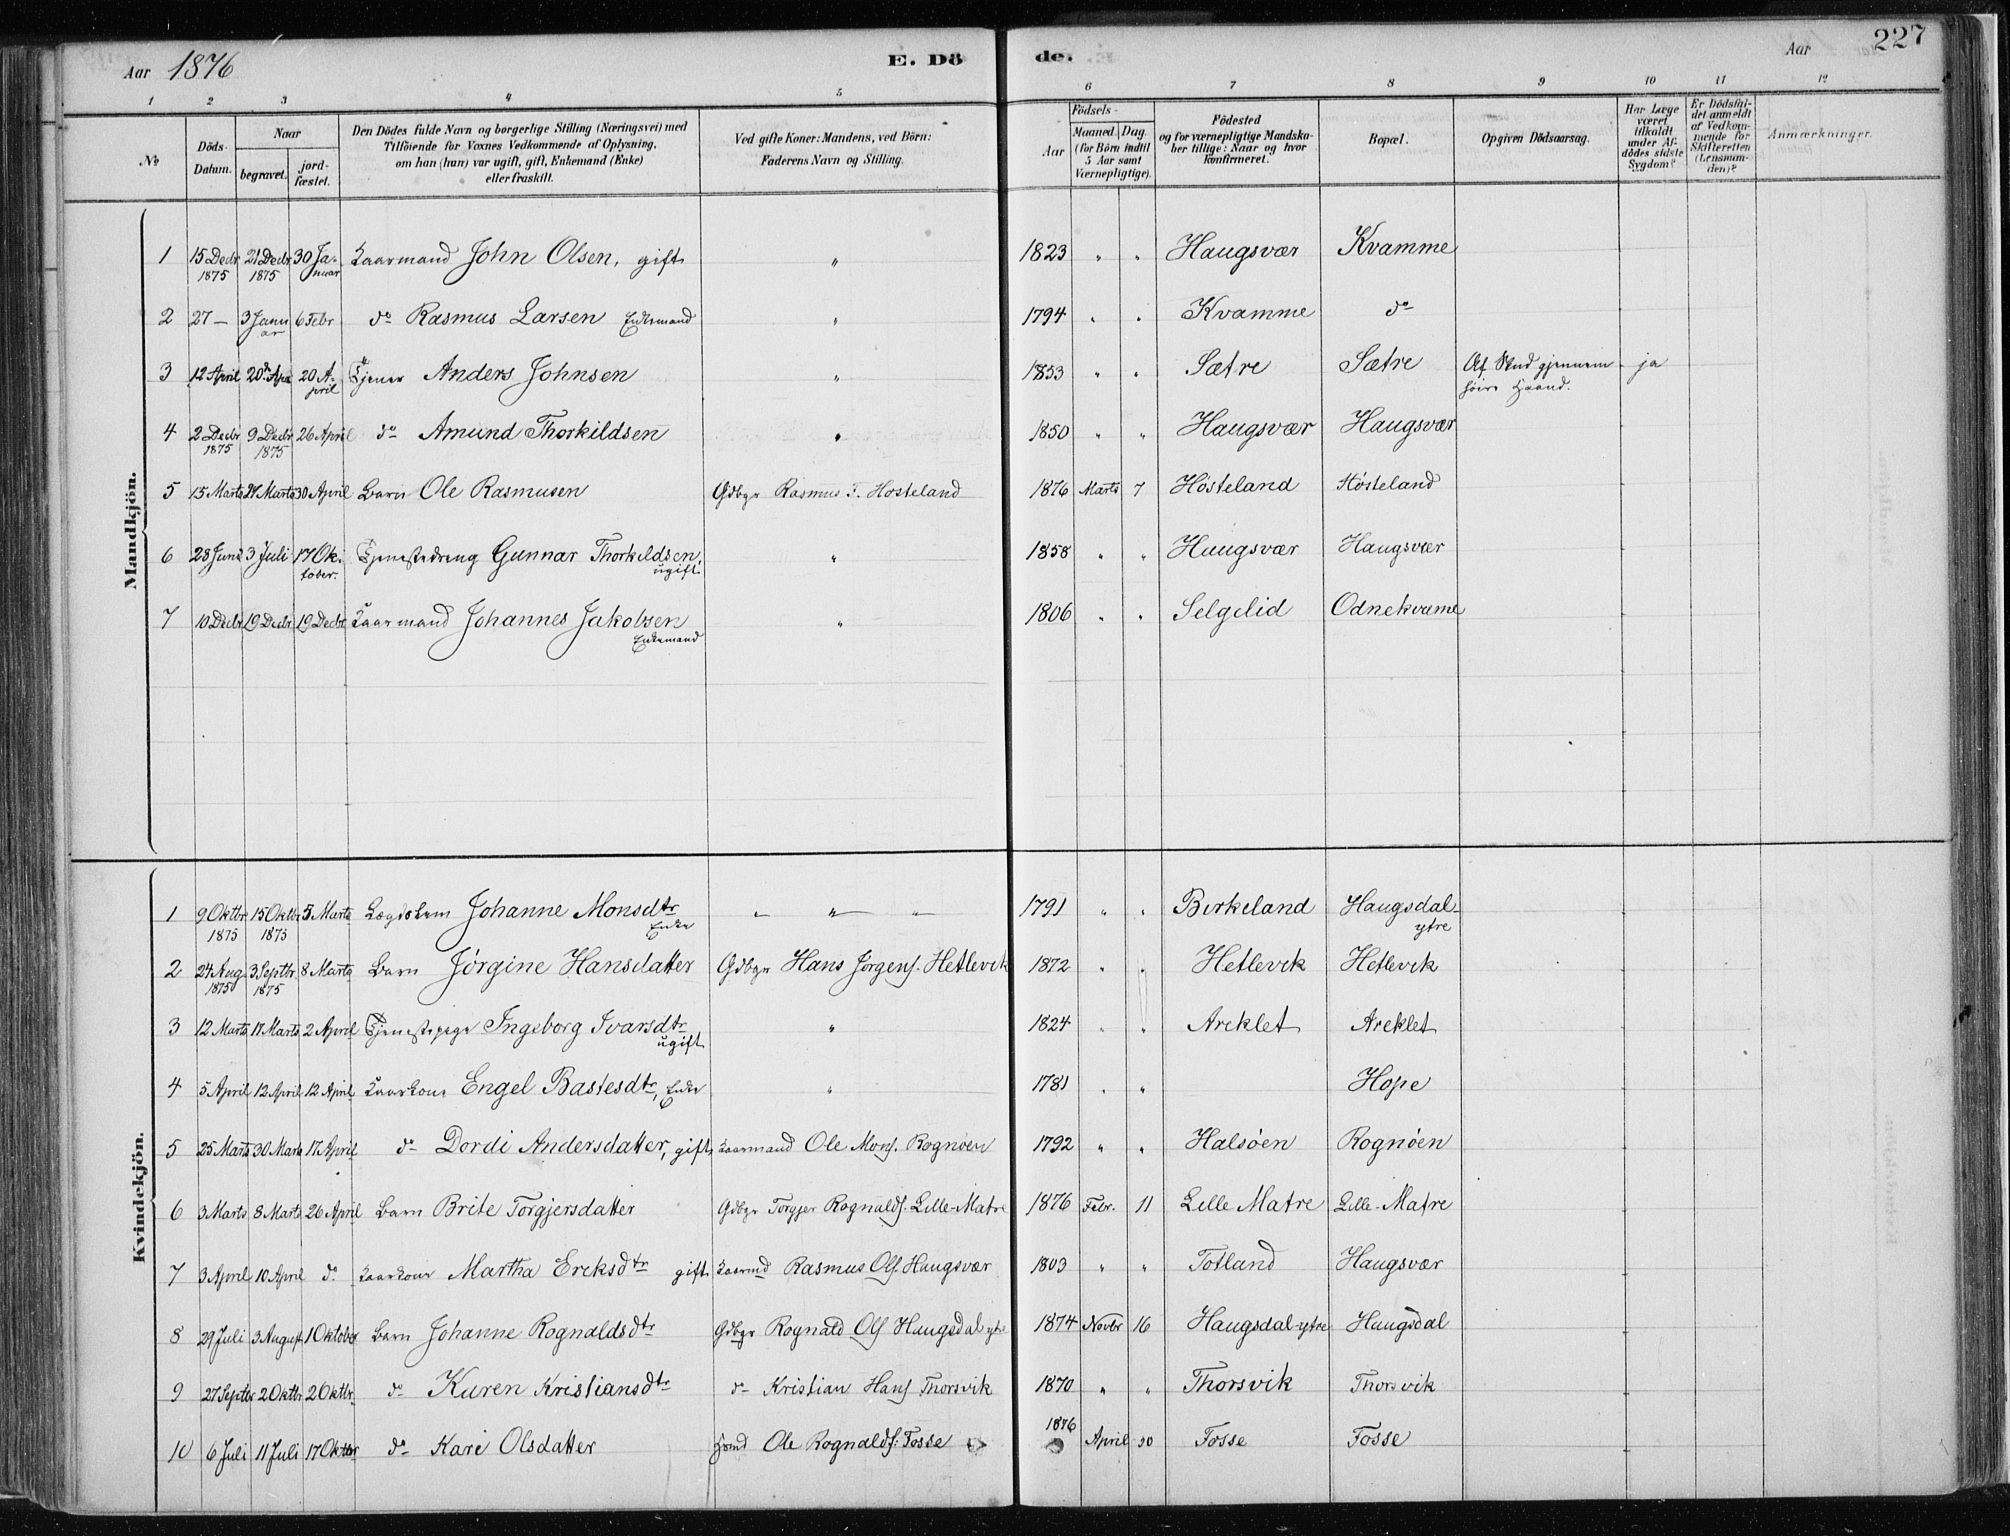 Aar 1876 E. Dö de. Aar 227
1 2 3 4 5 6 7 8 9 10 11 12
No
Döds-Datum.
Naar begravet. jord-fæstet.
Den Dödes fulde Navn og borgerlige Stilling (Næringsvei) med
Tilföiende for Voxnes Vedkommende af Oplysning,
om han (hun) var ugift, gift, Enkemand (Enke)
eller fraskilt.
Ved gifte Koner: Mandens, ved Börn:
Faderens Navn og Stilling.
Födsels-
Aar Maaned. Dag.
(for Börn indtil
5 Aar samt
Værnepligtige).
Födested
og for værnepligtige Mandska-
ber tillige: Naar og hvor
konfirmeret.
Bopæl.
Opgiven Dödsaarsag.
Har Læge
været
tilkaldt
under Af-
dödes sidste
Sygdom?
Er Dödsfal-
det anmeldt
af Vedkom-
mende for
Skifteretten
(Lensman-
den)?
Anmærkninger.
Mandkjön.
1 15 Decbr 1875 21 Decbr 1875 30 Januar Kaarmand John Olsen, gift " 1823 " " Haugsvær Kvamme
2 27 — 3 Januar 6 Febr do Rasmus Larsen Enkemand " 1794 " " Kvamme do
3 12 April 20 Apr 20 April Tjener Anders Johnsen " 1853 " " Sætre Sætre Af Skud gjennem ja
høire Haand.
4 2 Decbr 1875 9 Decbr 1875 26 April do Amund Thorkildsen " 1850 " " Haugsvær Haugsvær
5 15 Marts 21 Marts 30 April Barn Ole Rasmusen Gdbgr Rasmus T. Hosteland 1876 Marts 7 Høsteland Høsteland
6 28 Juni 3 Juli 17 Oktober Tjenestedreng Gunnar Thorkildsen, ugift " 1858 " " Haugsvær Haugsvær
7 10 Decbr 19 Decbr 19 Decbr Kaarmand Johannes Jakobsen Enkemand " 1806 " " Selgelid Odnekvame
Kvindekjön.
1 9 Oktbr 1875 15 Oktbr 1875 5 Marts Lægdslem Johanne Monsdtr Enke " " " 1791 " " Birkeland Haugsdal ytre
2 24 Aug 1875 3 Septbr 1875 8 Marts Barn Jørgine Hansdatter Gdbgr Hans Jørgens. Hetlevik 1872 " " Hetlevik Hetlevik
3 12 Marts 17 Marts 2 April Tjenestepige Ingeborg Ivarsdtr ugift " 1824 " " Areklet Areklet
4 5 April 12 April 12 April Kaarkone Engel Bastesdtr, Enke " 1781 " " Hope
5 25 Marts 30 Marts 17 April do Dordi Andersdatter, gift Kaarmand Ole Mons. Rognøen 1792 " " Halsøen Rognøen
6 3 Marts 8 Marts 26 April Barn Brite Torgjersdatter Gdbgr Torgjer Rognalds. Lille-Matre 1876 Febr. 11 Lille Matre Lille-Matre
7 3 April 10 April do Kaarkone Martha Eriksdtr gift Kaarmd Rasmus Ols. Haugsvær 1803 " " Totland Haugsvær
8 29 Juli 3 August 1 Oktober Barn Johanne Rognaldsdtr Gdbgr Rognald Ols Haugsdal ytre 1874 Novbr 16 Haugsdal-ytre Haugsdal
9 27 Septbr 2 Oktbr 2 Oktbr do Karen Kristiansdtr do Kristian Hans Thorsvik 1870 " " Thorsvik Thorsvik
10 6 Juli 11 Juli 17 Oktbr do Kari Olsdatter Hsmd Ole Rognalds. Fosse 1876 April 30 Fosse Fosse